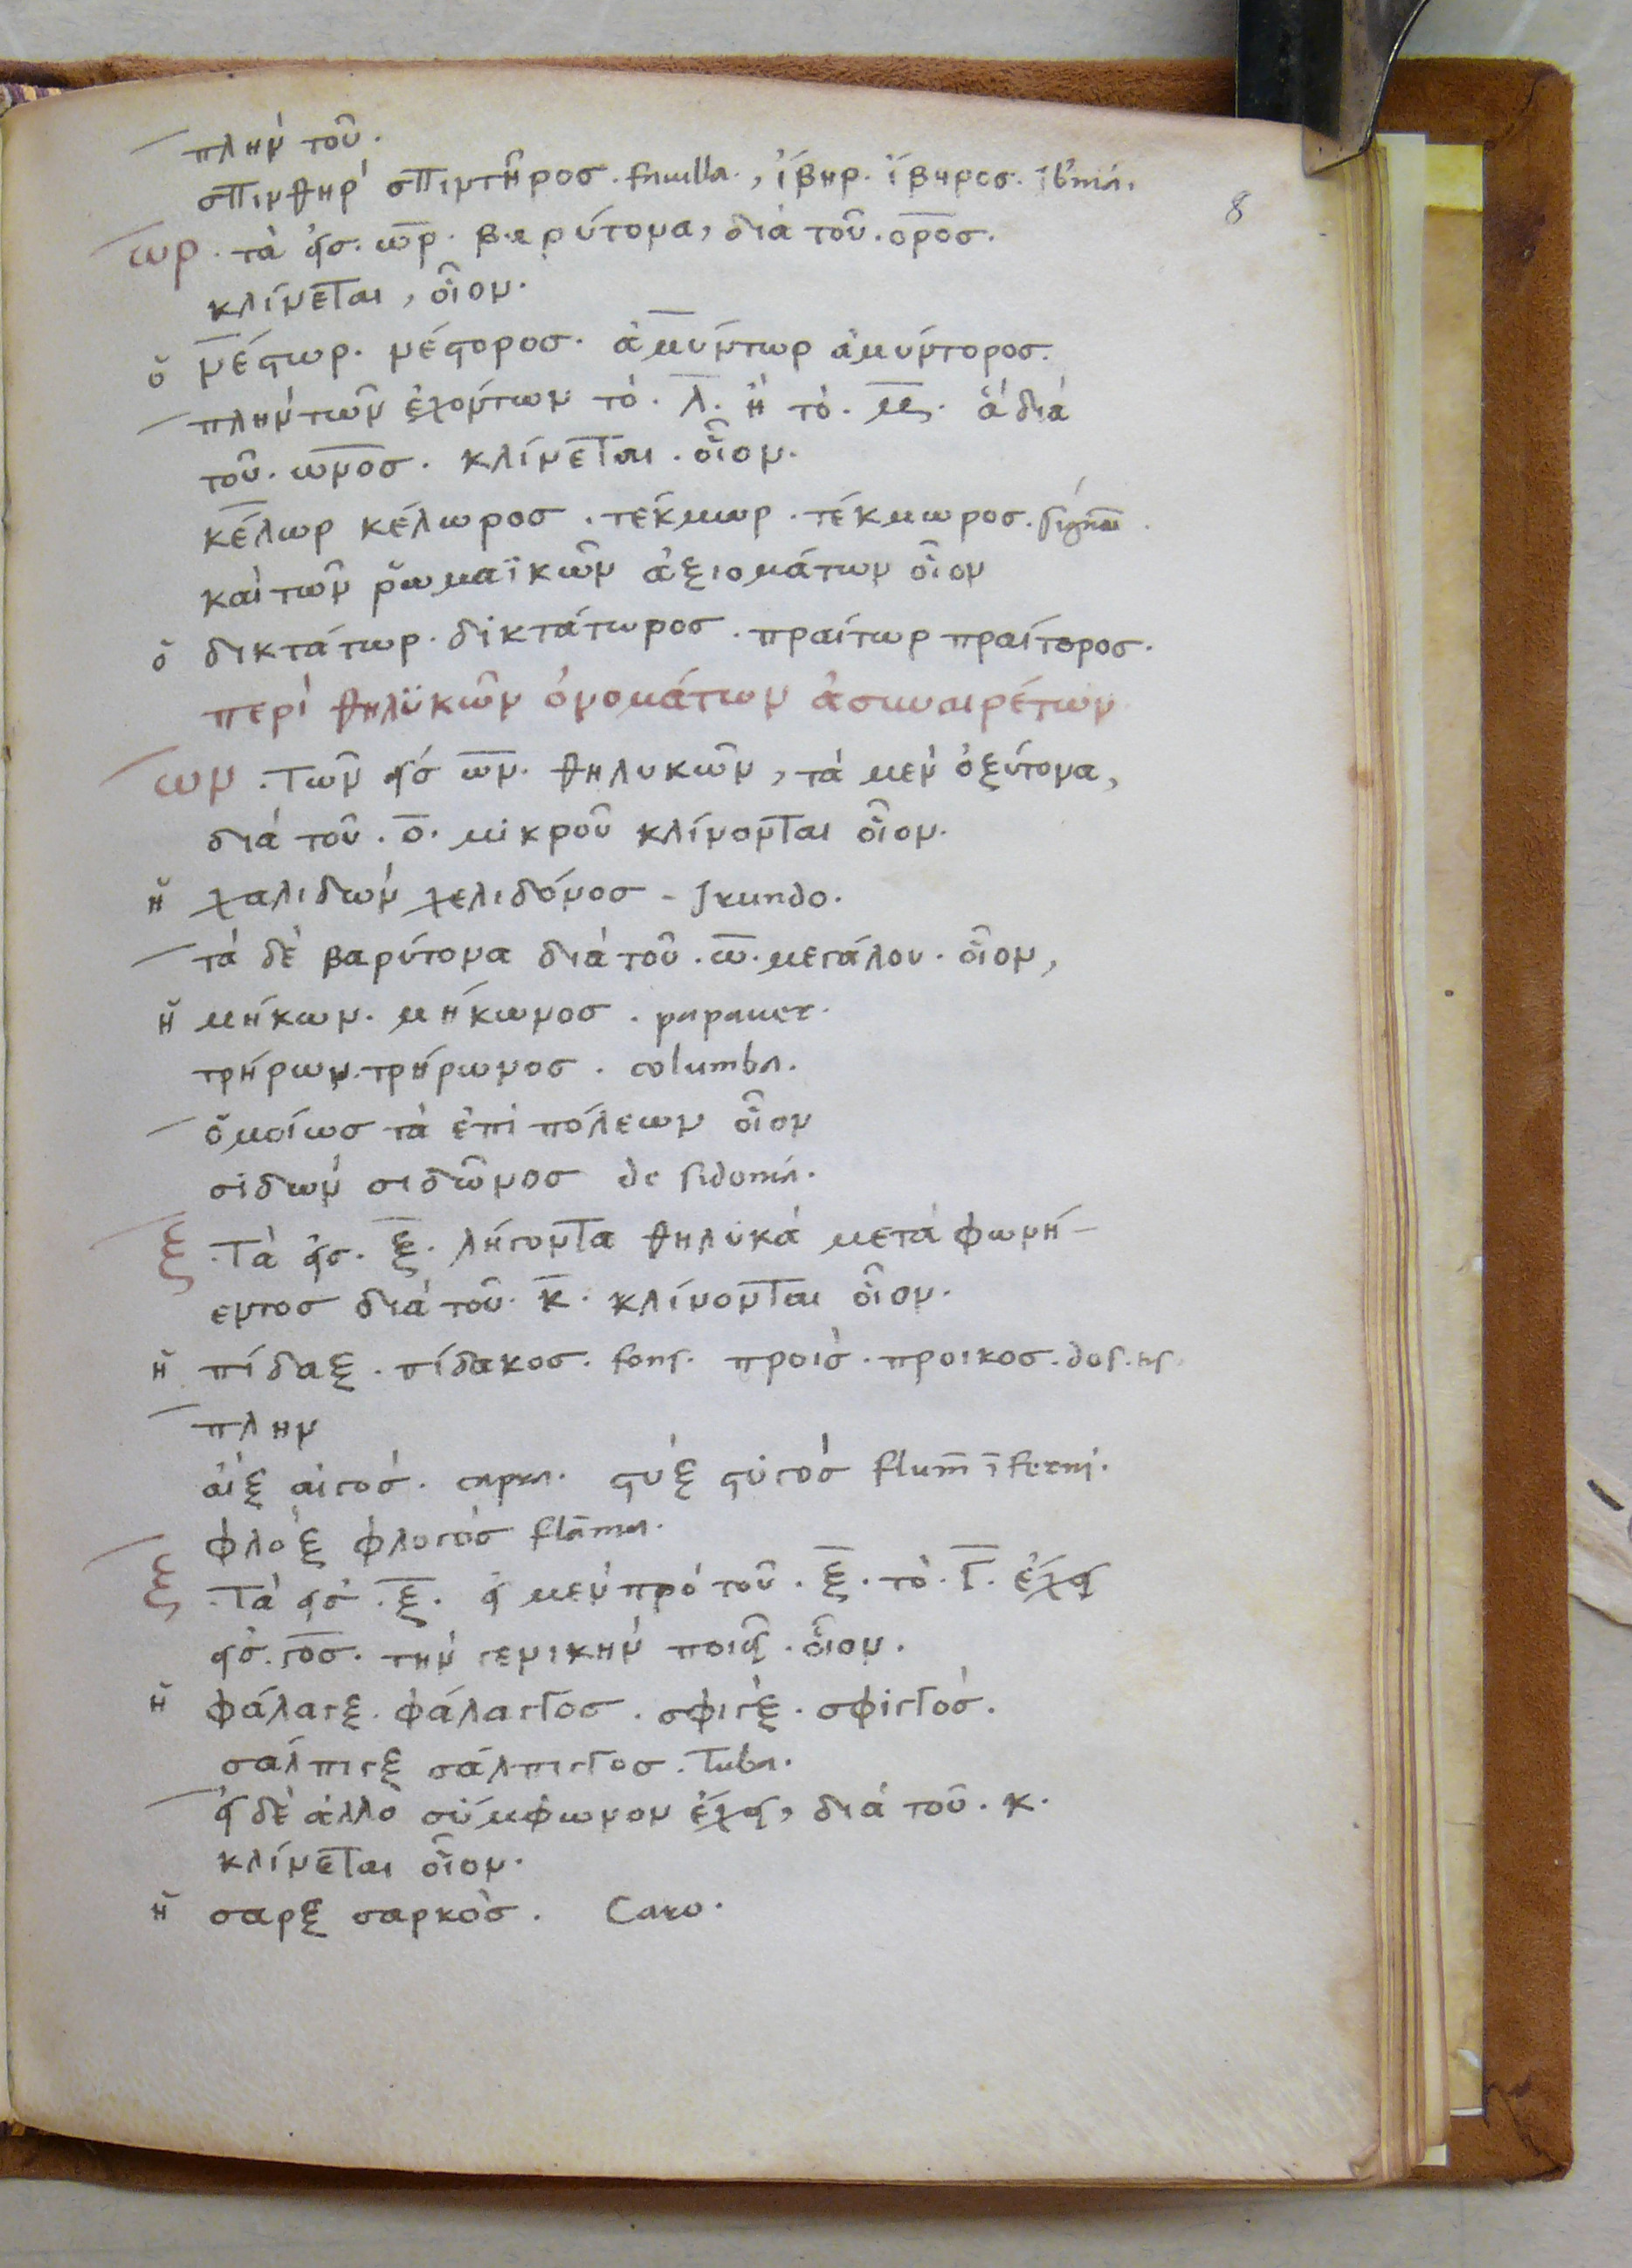 πλὴν τοῦ·
σπινθὴρ σπιντῆρος. fauilla·, ἴβηρ. ἴβηρος.
8
ωρ· τὰ εἰσ· ωρ· βαρύτονα, διὰ τοῦ· ορος·
κλίνεται, οἷον·
ὁ νέστωρ· νέστορος· ἀμύντωρ ἀμύντορος·
πλὴν τῶν ἐχόντων τὸ· λ· ἢ τὸ· μ· ἃ διὰ
τοῦ· ωνος· κλίνεται· οἷον·
κέλωρ κέλωρος · τέκμωρ · τέκμωρος. signū
καὶ τῶν ῥωμαϊκῶν ἀξιομάτων οἷον
ὁ δικτάτωρ· δικτάτωρος · πραίτωρ πραίτορος·
περὶ θηλϋκῶν ὀνομάτων ἀσυναιρέτων
ων · Τῶν εἰσ ων· θηλυκῶν, τὰ μὲν ὀξύτονα,
διὰ τοῦ· ο· μικροῦ κλίνονται οἷον·
ἡ χαλιδὼν χελιδόνος - Irundo·
τὰ δὲ βαρύτονα διὰ τοῦ· ω· μεγάλου· οἷον,
ἡ μήκων· μήκωνος · papauer·
τρήρων· τρήρωνος · columba·
ὁμοίως τὰ ἐπὶ πόλεων οἷον
σιδὼν σιδῶνος de sidonia·
ξ ·Τὰ εἰσ· ξ· λήγοντα θηλυκὰ μετὰ φωνή-
εντος διὰ τοῦ· κ· κλίνονται οἷον·
ἡ πίδαξ · πίδακος· fons· προισ · προικος. dos·
πλην
αἲξ αἰγός· capra· στύξ στυγός flum̄ ī ferni·
φλὸξ φλογός flāma·
ξ ·Τὰ εἰσ ·ξ· εἰ μὲν πρὸ τοῦ· ξ· τὸ· γ· ἔχει
εἰσ· γος· τὴν γενικὴν ποιεῖ· οἷον·
ἡ φάλαγξ· φάλαγγος · σφιγξ · σφιγγός·
σαλπιγξ σάλπιγγος· Tuba·
εἰ δὲ ἄλλο σύμφωνον ἔχει, διὰ τοῦ· κ·
κλίνεται οἷον·
ἡ σαρξ σαρκὸς · Caro·